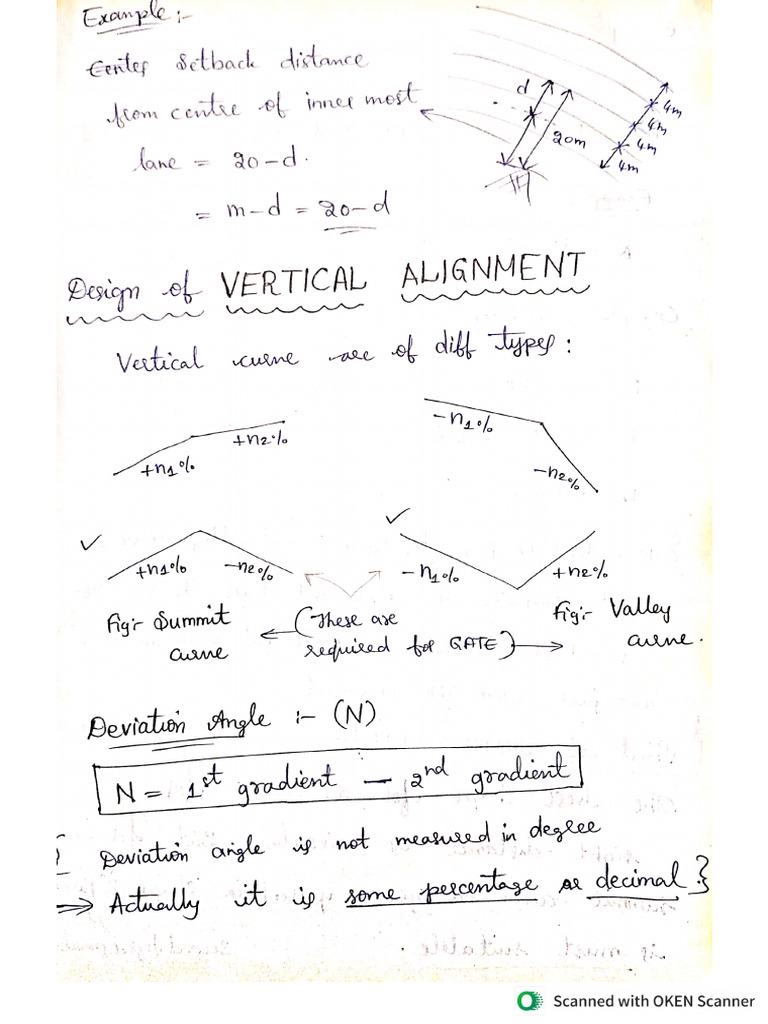 Example :-
Center Setback distance
from centre of inner most
lane = 20-d.
= m-d = 20-d
d
20m
4m
4m
4m
4m
Design of VERTICAL ALIGNMENT
Vertical curve are of diff types :
+n1%
+n2%
-n1%
-n2%
✓
+n1%
-n2%
✓
-n1%
+n2%
Fig:- Summit
curve
(These are
required for GATE)
Fig:- Valley
curve.
Deviation Angle :- (N)
N = 1st gradient - 2nd gradient
{ Deviation angle is not measured in degree
⇒ Actually it is some percentage or decimal }
Scanned with OKEN Scanner